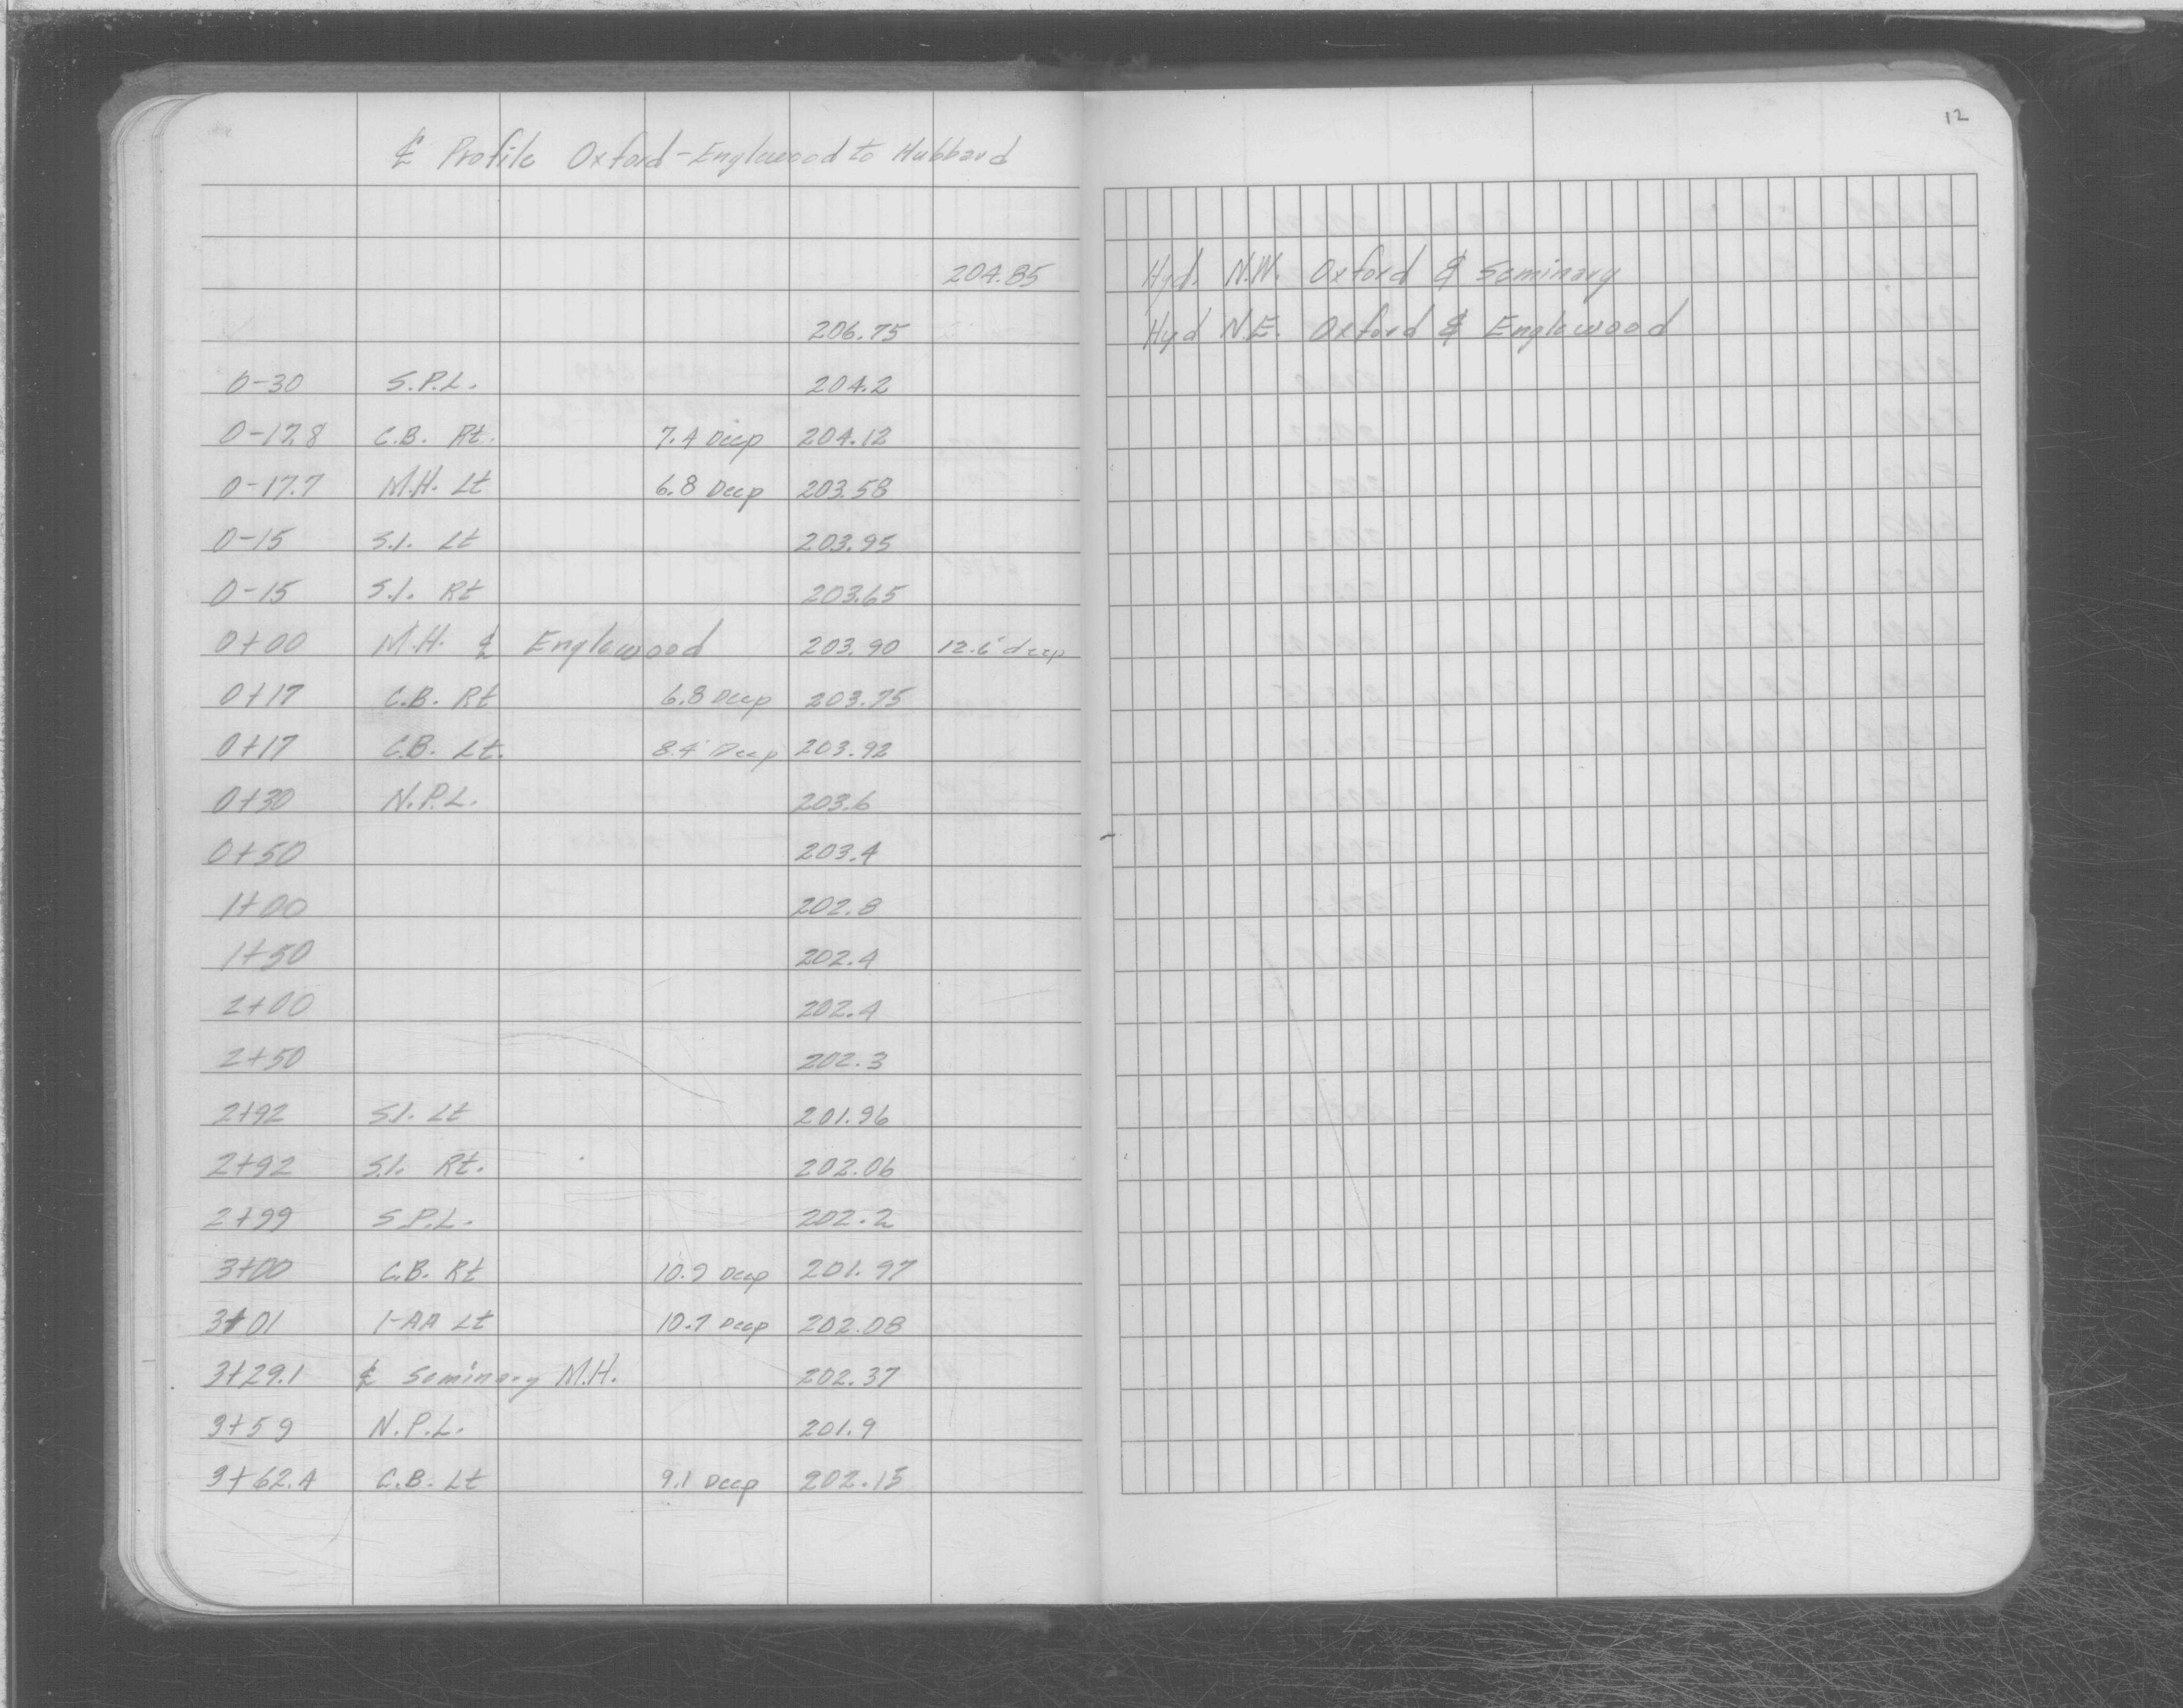 12
℄ Profile Oxford-Englewood to Hubbard
204.85 Hyd. N.W. Oxford & Seminary
206.75 Hyd N.E. Oxford & Englewood
0-30 S.P.L. 204.2
0-17.8 C.B. Rt. 7.4 Deep 204.12
0-17.7 M.H. Lt 6.8 Deep 203.58
0-15 S.I. Lt 203.95
0-15 S.I. Rt 203.65
0+00 M.H. ℄ Englewood 203.90 12.6' deep
0+17 C.B. Rt 6.8 Deep 203.75
0+17 C.B. Lt. 8.4' Deep 203.92
0+30 N.P.L. 203.6
0+50 203.4
1+00 202.8
1+50 202.4
2+00 202.4
2+50 202.3
2+92 S.I. Lt 201.96
2+92 S.I. Rt. 202.06
2+99 S.P.L. 202.2
3+00 C.B. Rt 10.9 Deep 201.97
3+01 1-AA Lt 10.7 Deep 202.08
3+29.1 ℄ Seminary M.H. 202.37
3+59 N.P.L. 201.9
3+62.4 C.B. Lt 9.1 Deep 202.15